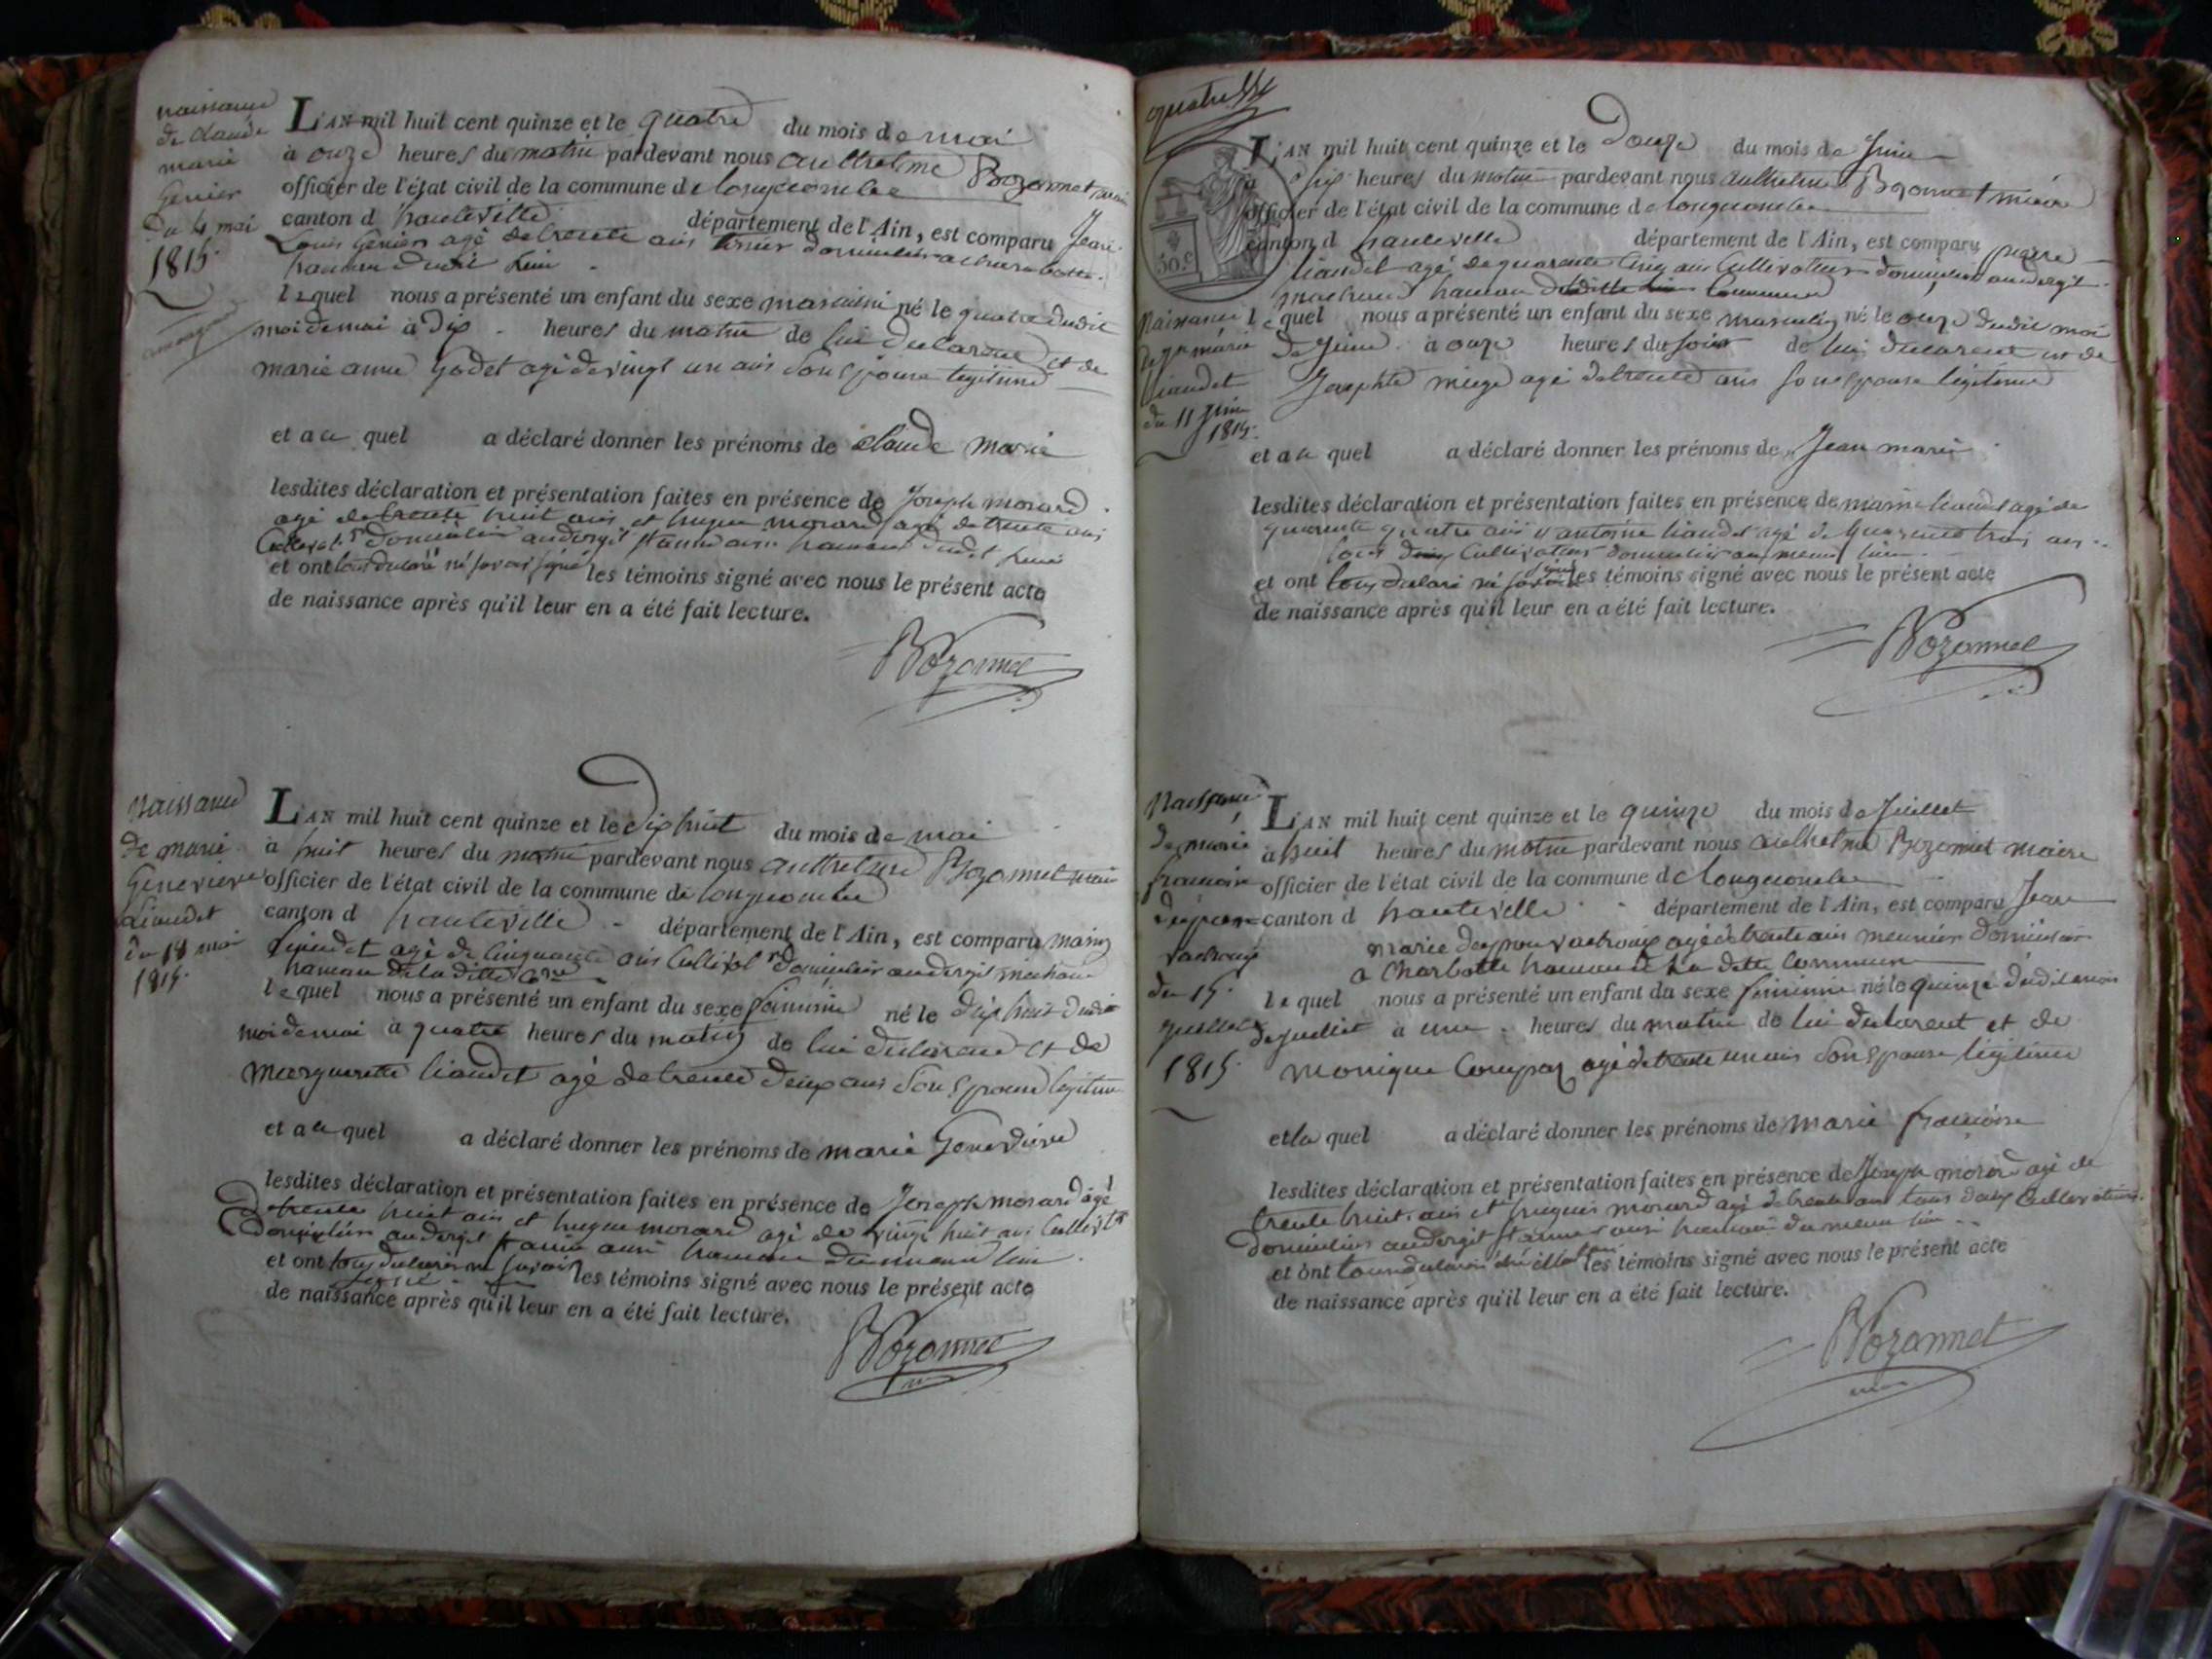 naissance
de Claude
marie
Genier
du 4 mai
1815.
L'AN mil huit cent quinze et le quatre du mois de mai
à onze heures du matin pardevant nous anthelme Bozonnet maire
officier de l'état civil de la commune de longecombe
canton d hauteville département de l'Ain, est comparu Jean
Louis Genier agé de trente ans domicilié a charabotte
hameau dudit lieu
lequel nous a présenté un enfant du sexe masculin né le quatre dudit
moi de mai à dix heures du matin de lui declarant et de
marie anne Godet agé de vingt un ans son epouse legitime
et a ce quel a déclaré donner les prénoms de claude marie
lesdites déclaration et présentation faites en présence de Joseph morard
agé de trente huit ans et hugue morard agé de trente ans
Cultivat.rs domicilié hameau dudit lieu
et ont tous declaré né savoir signé les témoins signé avec nous le présent acte
de naissance après qu'il leur en a été fait lecture.
Bozonnet
Naissance
de marie
Genevieve
Liaudet
du 18 mai
1815.
L'AN mil huit cent quinze et le dix huit du mois de mai
à huit heures du matin pardevant nous anthelme Bozonnet maire
officier de l'état civil de la commune de longecombe
canton d hauteville département de l'Ain, est comparu
Liaudet agé de cinquante ans Cultivat.r domicilié
hameau de la ditte C.ne
lequel nous a présenté un enfant du sexe feminin né le dix huit dudit
moi de mai à quatre heures du matin de lui declarant et de
Marguerite liaudet agé de trente deux ans son epouse legitime
et a ce quel a déclaré donner les prénoms de marie Genevieve
lesdites déclaration et présentation faites en présence de Joseph morard agé
de trente huit ans et hugue morard agé de vingt huit ans Cultivat.rs
domicilié hameau du meme lieu
et ont tous declaré ne savoir signé les témoins signé avec nous le présent acte
de naissance après qu'il leur en a été fait lecture.
Bozonnet
quatre
50.c
Naissance
de J.n marie
Liaudet
du 11 Juin
1815.
L'AN mil huit cent quinze et le Douze du mois de Juin
à dix heures du matin pardevant nous anthelme Bozonnet maire
officier de l'état civil de la commune de longecombe
canton d hauteville département de l'Ain, est comparu pierre
liaudet agé de quarante cinq ans Cultivateur domicilié
hameau de ladite Commune
lequel nous a présenté un enfant du sexe masculin né le onze dudit moi
de Juin à onze heures du soir de lui declarant et de
Josephte miege agé de trente ans son epouse legitime
et a ce quel a déclaré donner les prénoms de Jean marie
lesdites déclaration et présentation faites en présence de liaudet agé de
quarente quatre ans et antoine liaudet agé de quarente trois ans
tous deux Cultivateurs domicilié au meme lieu
et ont tous declaré né savoir signé les témoins signé avec nous le présent acte
de naissance après qu'il leur en a été fait lecture.
Bozonnet
Naissance
de marie
francoise
du 15
Juillet
1815.
L'AN mil huit cent quinze et le quinze du mois de Juillet
à huit heures du matin pardevant nous anthelme Bozonnet maire
officier de l'état civil de la commune de longecombe
canton d hauteville département de l'Ain, est comparu Jean
marie agé de trente ans meunier domicilié
a Charbotte hameau de La ditte Commune
lequel nous a présenté un enfant du sexe feminin né le quinze dudit mois
de Juillet à une heures du matin de lui declarent et de
monique agé de trente un ans son epouse legitime
et la quel a déclaré donner les prénoms de marie francoise
lesdites déclaration et présentation faites en présence de Joseph morard agé de
trente huit ans et hugues morard agé de trente ans tous deux Cultivateurs
domicilies hameau du meme lieu
et ont les témoins signé avec nous le présent acte
de naissance après qu'il leur en a été fait lecture.
Bozonnet